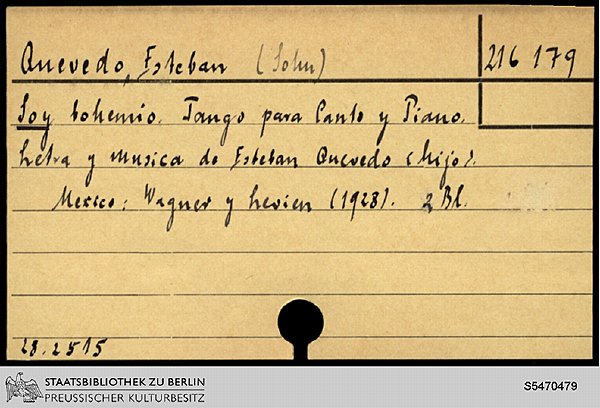 Quevedo, Esteban (Sohn)
216 179
Soy bohemio. Tango para Canto y Piano.
Letra y musica de Esteban Quevedo (hijo).
Mexico: Wagner y Levien (1928). 2 Bl.
28.2515
STAATSBIBLIOTHEK ZU BERLIN
PREUSSISCHER KULTURBESITZ
S5470479